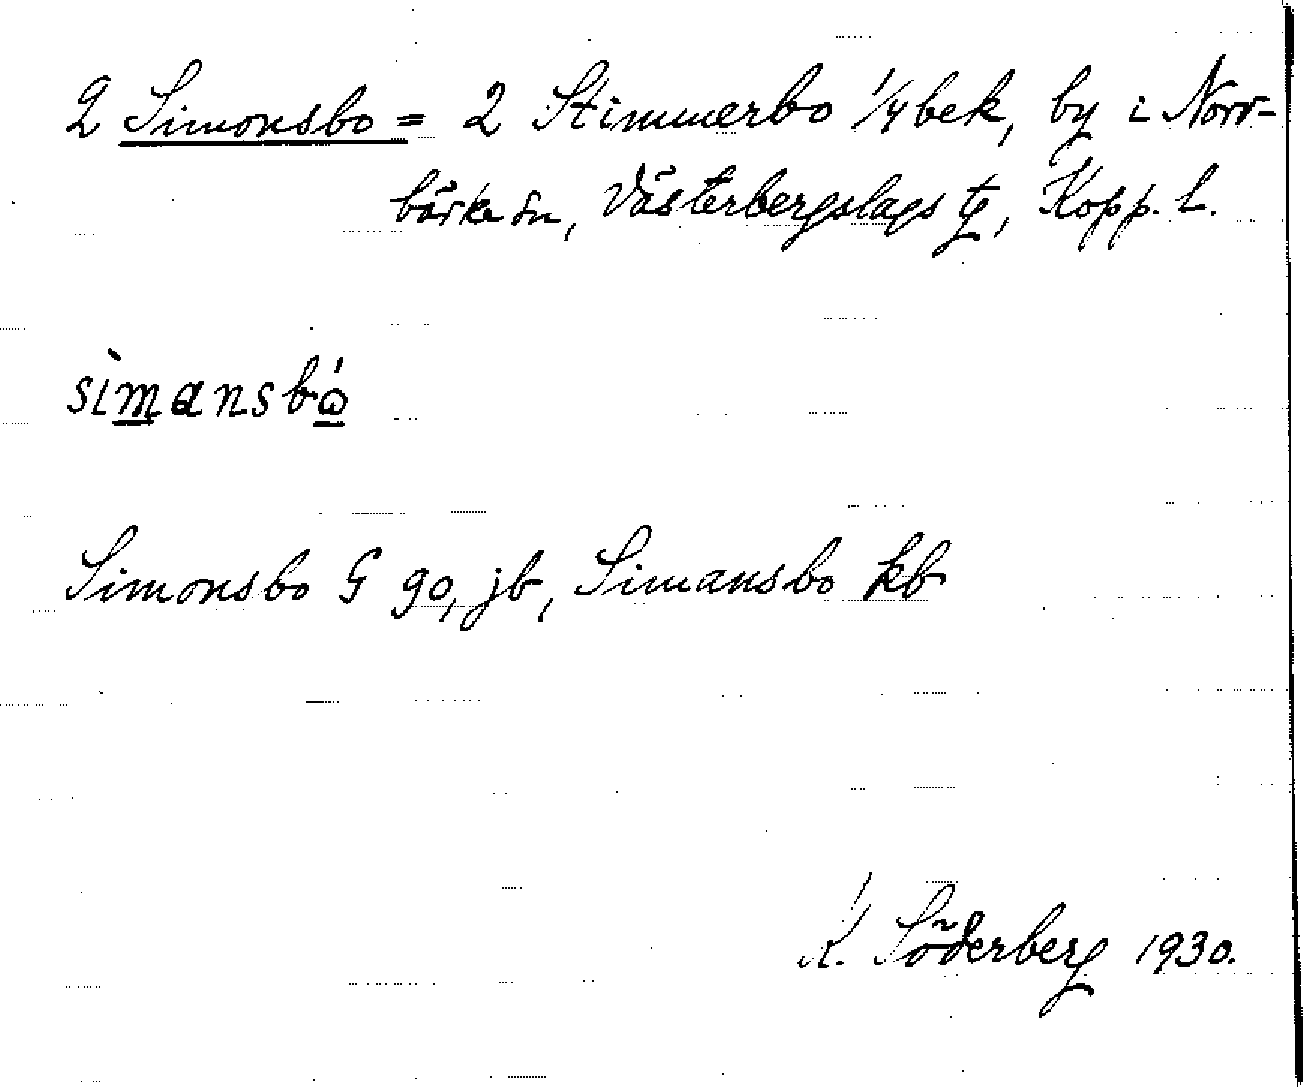 2 Simonsbo = 2 Stimmerbo 1/4 bek, by i Norr-
bärke sn, Västerbergslags tg, Kopp. L.
sìmansbó
Simonsbo G go, jb, Simansbo kb
K. Söderberg 1930.